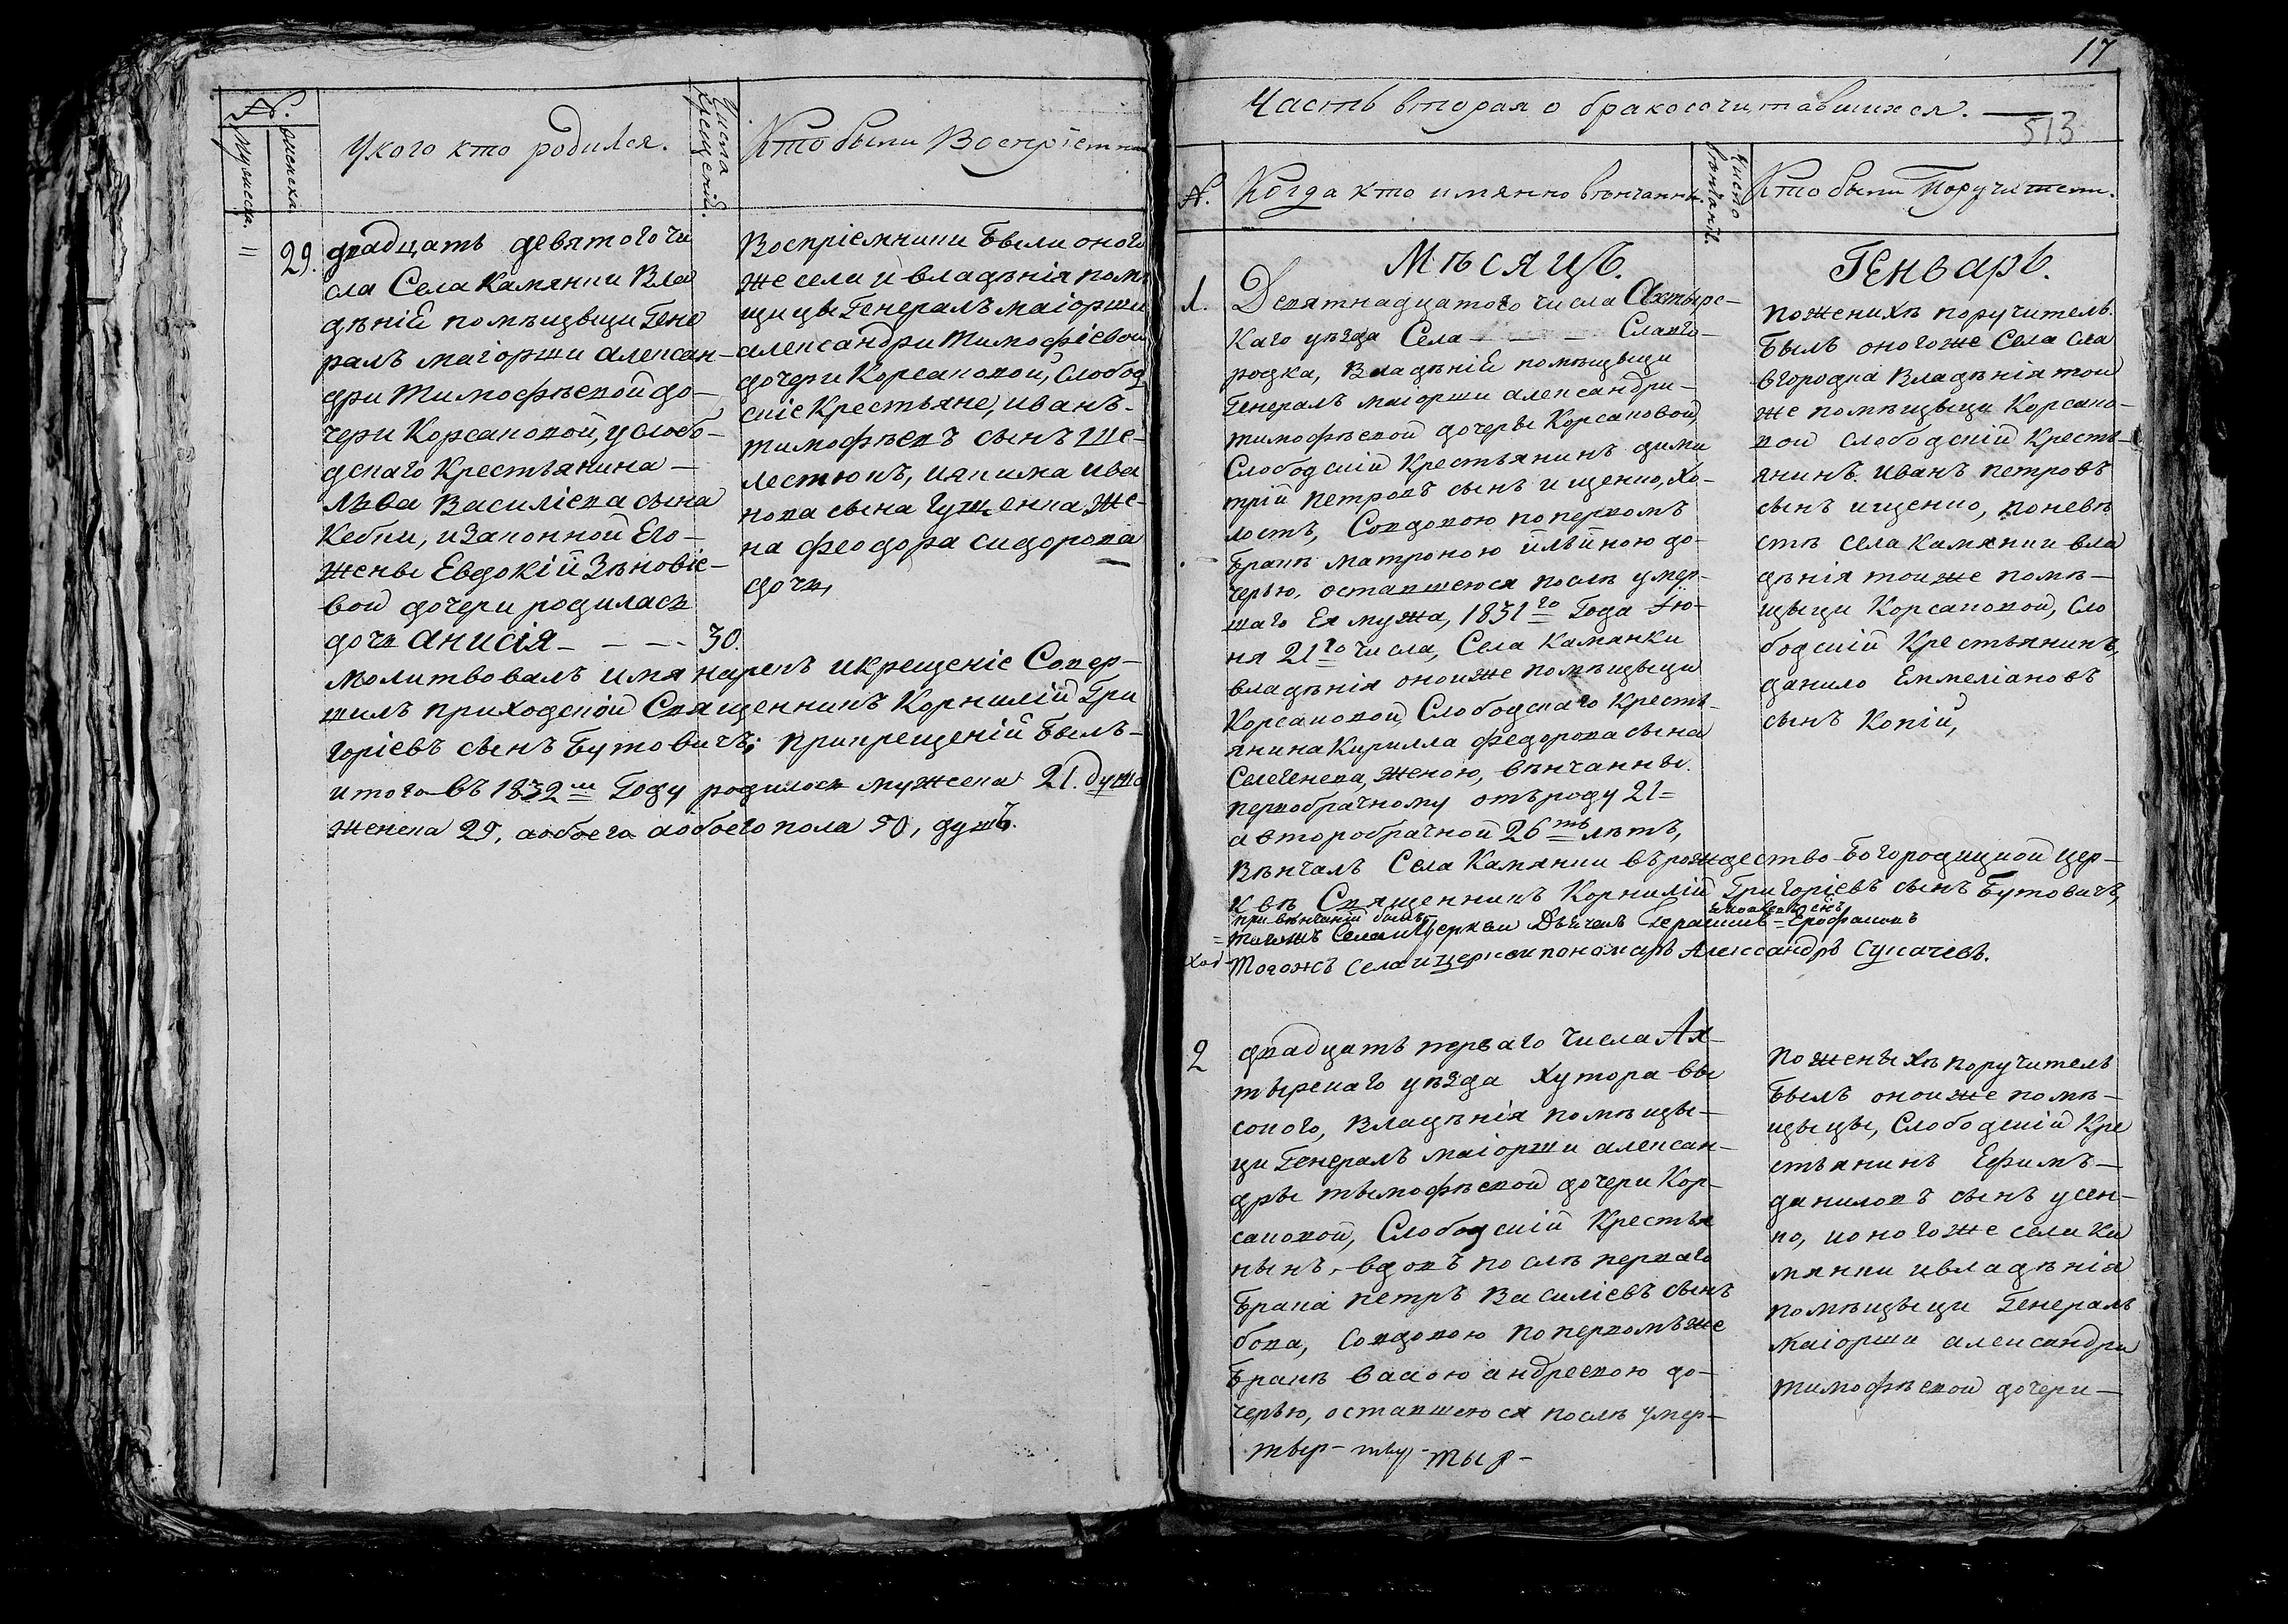 №.
Мужеска.
женска.
У кого кто родился.
Числа крещений.
Кто были Воспріемни
=
29.
двадцать девятого чи
сла Села Камянки Вла
дѣній помѣщыци Гене
ралъ маіорши алексан-
дри Тимофѣевой до-
чери Корсаковой, у слобо-
дскаго Крестьянина-
Лѣва Василіева сына
Кебки, и Законной Его-
жены Евдокій Зѣновіе-
вой дочери родилась
дочь Анисія - - - 30.
Воспріемники Были оного
же сели и владѣнія помѣ
щицы Генералъ маіорши
александри Тимофіевой
дочери Корсаковой, Слобод
скіе Крестьяне, иванъ-
тимофѣевъ сынъ Ше-
лестюкъ, и якима ива
нова сына Гущенка же-
на феодора сидорова
дочь,
Молитвовалъ имя нарекъ и крещеніе Совер-
шилъ приходскій Священникъ Корнилій Гри
горіевъ сынъ Бутовичъ; при крещеній Былъ-
итого въ 1832м Году родилось мужеска 21. душа
женска 29, аобоего аобоего пола 50, душъ.
17
Часть вторая о бракосочитавшихся.
513
№.
Когда кто имянно вѣнчанны.
Число вѣнчаній.
Кто были Поручители.
Мѣсяцъ.
Генварь.
1.
Девятнадцатого числа Ахтырс-
каго уѣзда Села - - - Славго-
родка, Владѣній помѣщыци
Генералъ маіорши александри-
тимофѣевой дочеры Корсаковой,
Слободскій Крестьянинъ дими
трій Петровъ сынъ ищенко, хо-
лостъ, Совдовою поперкомъ
Бракѣ матроною ильиною до-
черью, оставшеюся послѣ умер-
шаго Ея мужа, 1831го Года Ію-
ня 21го числа, Села Камянки
владѣнія оноиже помѣщыци
Корсаковой Слободскаго Кресть-
янина Кирилла федорова сына
Селегенева, женою, вѣнчанны.
первобрачному отъроду 21=
а второбрачной 26ть лѣтъ,
Пожениxѣ поручитель
Былъ оногоже Села Сла
вгородка Владѣнія тои
же помѣщыци Корсако-
вой слободскій Кресть-
янинъ. Иванъ петровъ
сынъ ищенко, поневѣ
стѣ села Камянки вла
дѣнія тоиже помѣ-
щыци Корсаковой, Сло
бодскій Крестьянинъ,
данило Еммеліановъ
сынъ Копій,
Вѣнчалъ Села Камянки въ рождество-Богородицкой цер-
квѣ Священникъ Корнилій Григоріевъ сынъ Бутовичъ,
при вѣнчаній былъ-
тогожъ Села и Церкви Дьячекъ Герасимъ = Ерофаловъ
Тогожъ села и церкви пономарь Александръ Сукачевъ.
2
двадцать перваго числа Ах-
тырскаго уѣзда хутора вы
сокого, Владѣнія помѣщы-
ци Генералъ маіорши алексан-
дры тымофѣевой дочери Кор-
саковой, Слободскій Крестья
нынъ, вдовъ послѣ перваго
Брака петръ Василіевъ сынъ
бока, совдовою поперкомъже
Бракѣ васою андреевою до-
черью, оставшеюся послѣ умер-
тыр- тыр- тыр-
Поженыхѣ поручитель
Былъ оноиже помѣ-
щыцы, Слободскій Кре
стьянинъ Ефимъ-
даниловъ сынъ усен-
ко, и оногоже села Ка
мянки ивладѣнія
помѣщыци Генералъ
маіорши александри
тимофѣевой дочери-